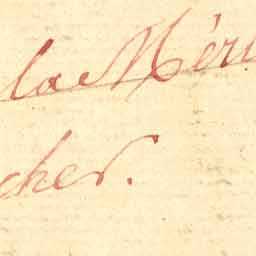 la Méri
cher.